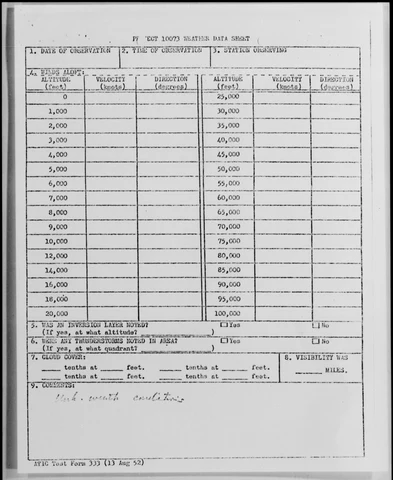 PROJECT 10073 WEATHER DATA SHEET
1. DATE OF OBSERVATION 2. TIME OF OBSERVATION 3. STATION OBSERVING
4. WINDS ALOFT:
ALTITUDE VELOCITY DIRECTION ALTITUDE VELOCITY DIRECTION
(feet) (knots) (degrees) (feet) (knots) (degrees)
0 25,000
1,000 30,000
2,000 35,000
3,000 40,000
4,000 45,000
5,000 50,000
6,000 55,000
7,000 60,000
8,000 65,000
9,000 70,000
10,000 75,000
12,000 80,000
14,000 85,000
16,000 90,000
18,000 95,000
20,000 100,000
5. WAS AN INVERSION LAYER NOTED? Yes No
(If yes, at what altitude?)
6. WERE ANY THUNDERSTORMS NOTED IN AREA? Yes No
(If yes, at what quadrant?)
7. CLOUD COVER: 8. VISIBILITY WAS
____ tenths at ____ feet. ____ tenths at ____ feet. ____ MILES.
____ tenths at ____ feet. ____ tenths at ____ feet.
9. COMMENTS:
ATIC Test Form 333 (13 Aug 52)